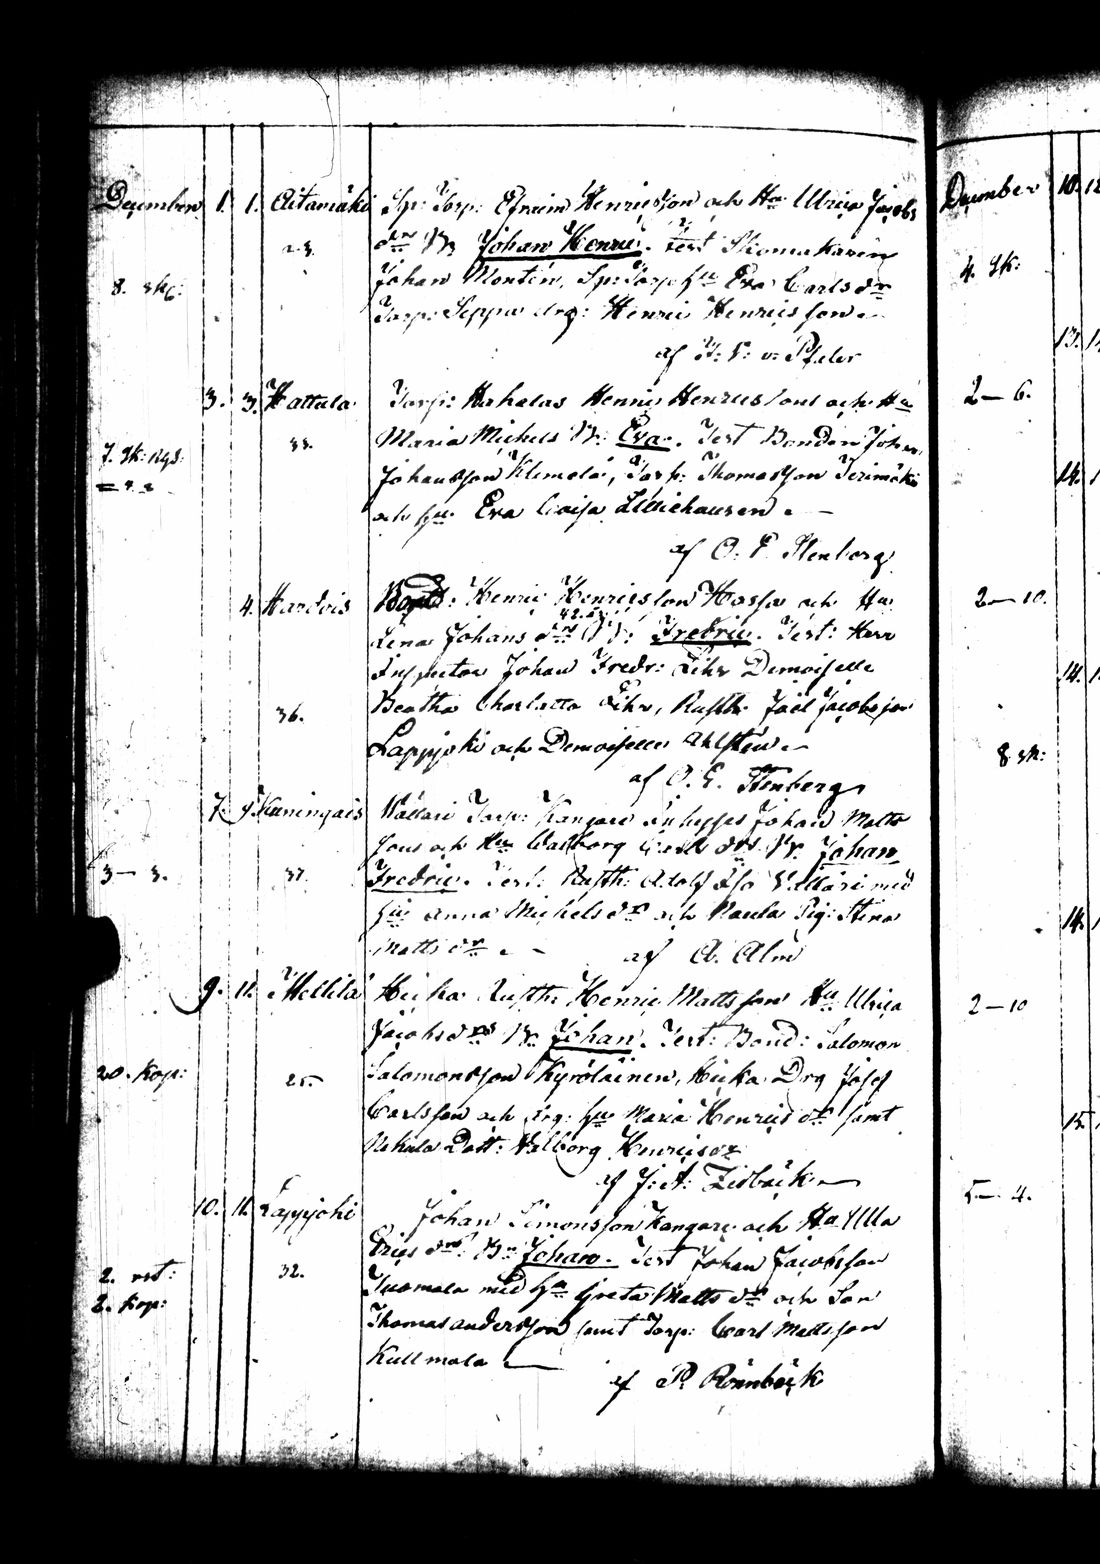 December 1. 1. Aitamäki Sp: Torp: Efraim Henricsson och Hu Ulrica Jacobs
28. dtr Bn Johan Henric. Test Skomakaren
8. sk: Johan Montén, Sp: Torp hu Eva Carls dr
Torp: Seppä drg: Henric Henricsson
af
3. 3. Hattula Torp: Henric Henricsson och Hu
33. Maria Michels B: Eva. Test Bonden Johan
7. sk: Johansson Klemelä, Torp: Thomasson
och hu Eva Caisa
af O. E. Stenberg
4. Henric Henricsson och Hu
42 år
Lena Johans dr Bn: Fredric. Test: Herr
Inspector Johan Fredr: Demoiselle
36. Beatha Charlotta Rusth: Joel Jacobsson
Lappjoki och Demoiselle Ahlstén
af O. E. Stenberg
7. 9. Kuningais Wällari Torp: Kangare Inhyses Johan Matts
sons och Hu Walborg Carls drs Bn Johan
3 — 3. 37. Fredric. Test: Rusth: Adolf Wällari med
hu Anna Michels dr och Naula Pig: Stina
Matts dr af A. Alm
9. 11. Mellilä Heicka Rusth: Henric Mattsson Hu Ulrica
Jacobs drs Bn Johan. Test: Bond: Salomon
20. kop: 25 Salomonsson Kyröläinen, Heicka Drg Josef
Carlsson och drg: hu Maria Henrics dr samt
Dott: Walborg Henricsdr
af J: A:
10. 11. Lappjoki Johan Simonsson Kangare och Hu Ulla
Erics drs Bn Johan. Test Johan Jacobsson
2. rst: 32. Tuomola med hu Greta Matts dr och Son
2. kop: Thomas Andersson samt Torp: Carl Mattsson
Kullmala
af P. Rönnbäck
December 10. 12
4. sk:
13.
2 — 6.
14.
2 — 10.
14.
8 sk:
14.
2 — 10
15.
5 — 4.